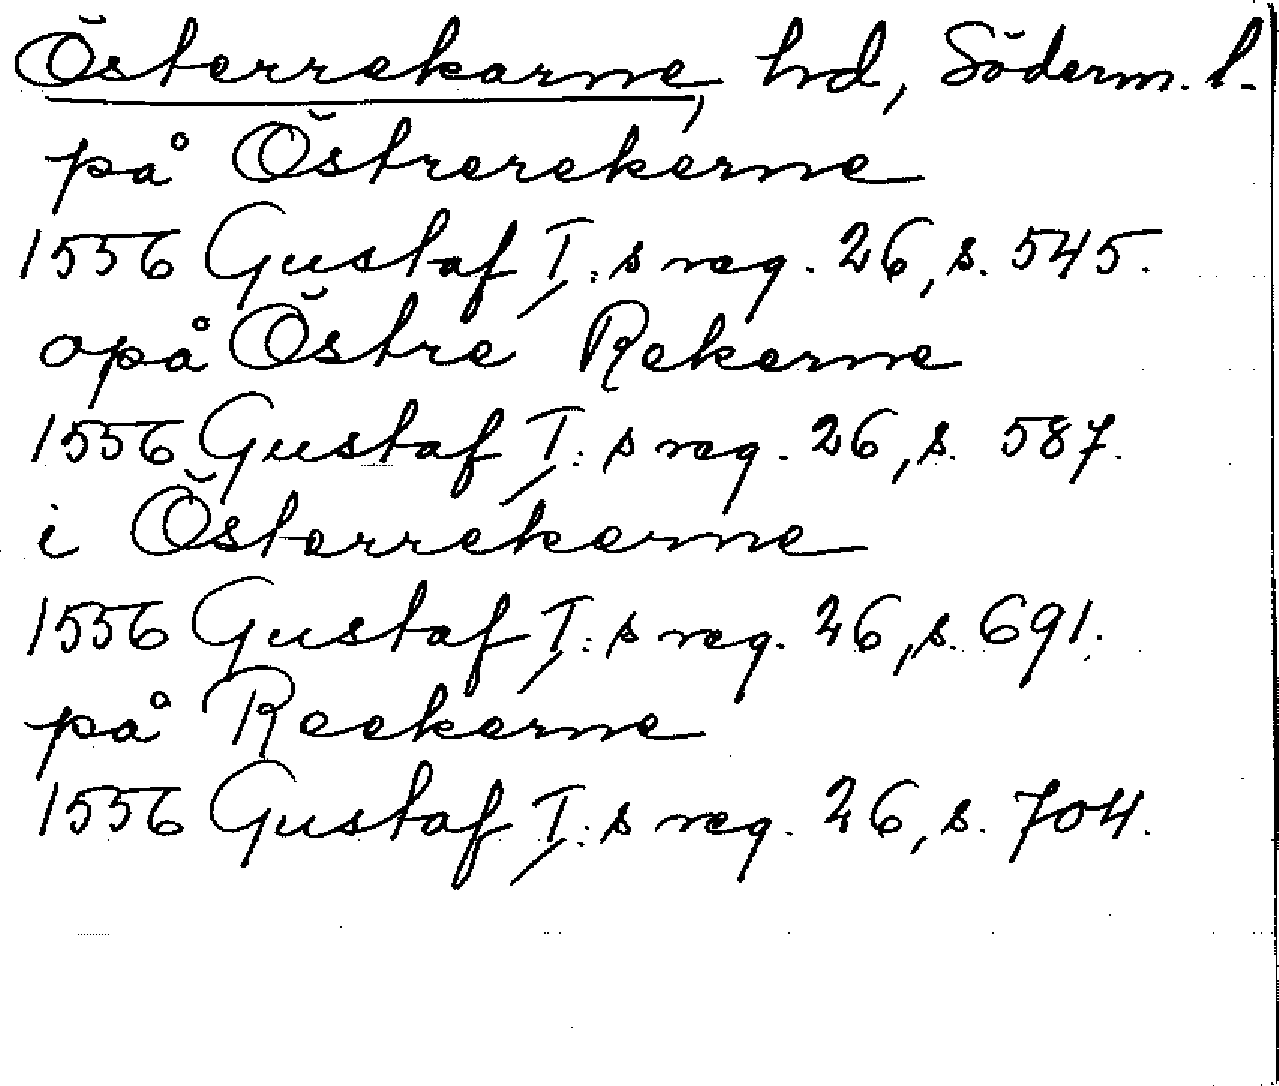 Österrekarne, hd, Söderm. l.
på Östrerekerne
1556 Gustaf I:s reg. 26, s. 545.
opå Östre Rekerne
1556 Gustaf I:s reg. 26, s. 587.
i Österrekerne
1556 Gustaf I:s reg. 26, s. 691.
på Reekerne
1556 Gustaf I:s reg. 26, s. 704.